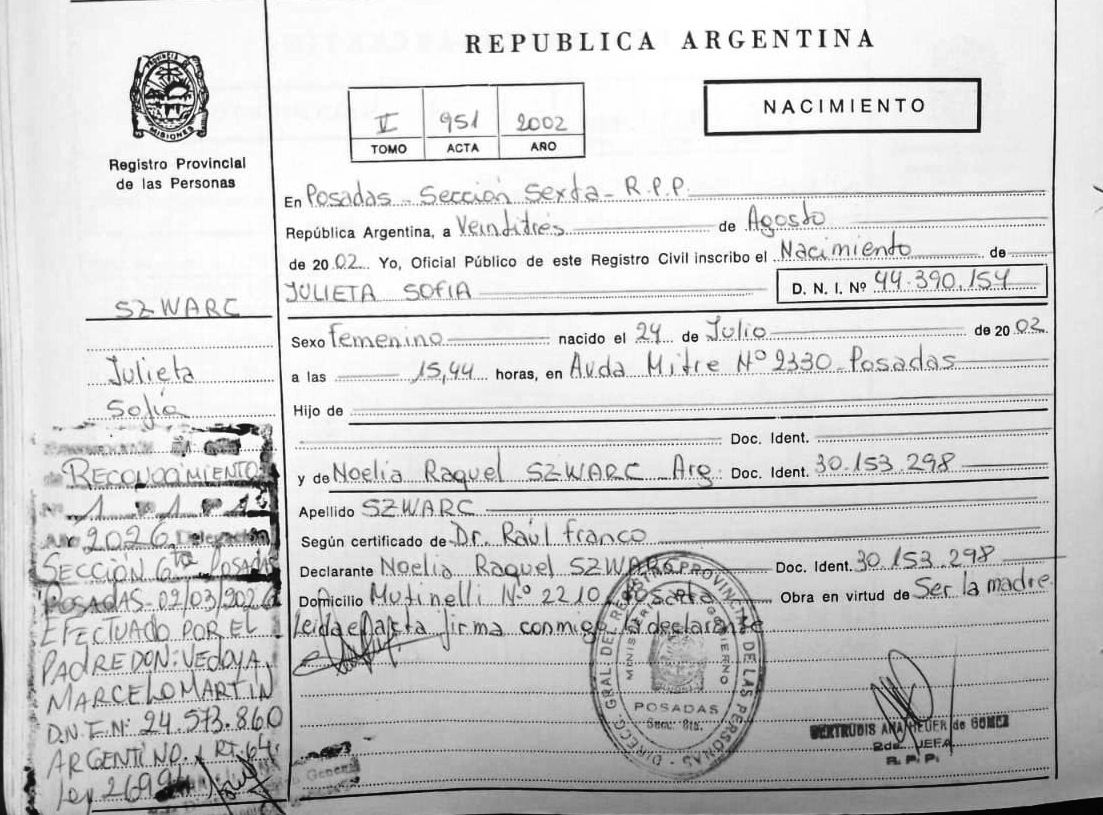 REPUBLICA ARGENTINA
PROVINCIA DE
MISIONES
Registro Provincial
de las Personas
II 951 2002
TOMO ACTA AÑO
NACIMIENTO
En Posadas - Sección Sexta - R.P.P.
República Argentina, a Veintitres de Agosto
de 2002 Yo, Oficial Público de este Registro Civil inscribo el Nacimiento de
JULIETA SOFIA D. N. I. Nº 44.390.154
Sexo femenino nacido el 24 de Julio de 2002
a las 15,44 horas, en Avda Mitre Nº 2330 Posadas
Hijo de
Doc. Ident.
y de Noelia Raquel SZWARC Arg. Doc. Ident. 30.153.298
Apellido SZWARC
Según certificado de Dr. Raúl Franco
Declarante Noelia Raquel SZWARC Doc. Ident. 30.153.298
Domicilio Mutinelli Nº 2210 Obra en virtud de Ser la madre
Leida el acta firma conmigo la declarante
SZWARC
Julieta
Sofía
RECONOCIMIENTO
Nº 1 1
Año 2026 Delegación
SECCIÓN 6ta POSADAS
POSADAS-02/03/2026
EFECTUADO POR EL
PADRE DON: VEDOYA,
MARCELO MARTIN
D.N.I. Nº 24.573.860
ARGENTINO. ART. 64.
Ley 26994
General
DIRECC. GRAL. DEL REGISTRO PROVINCIAL DE LAS PERSONAS
MINISTERIO DE GOBIERNO
POSADAS
Secc. 6ta.
GERTRUDIS ANA HEUER de GOMEZ
2da. JEFA
R. P. P.